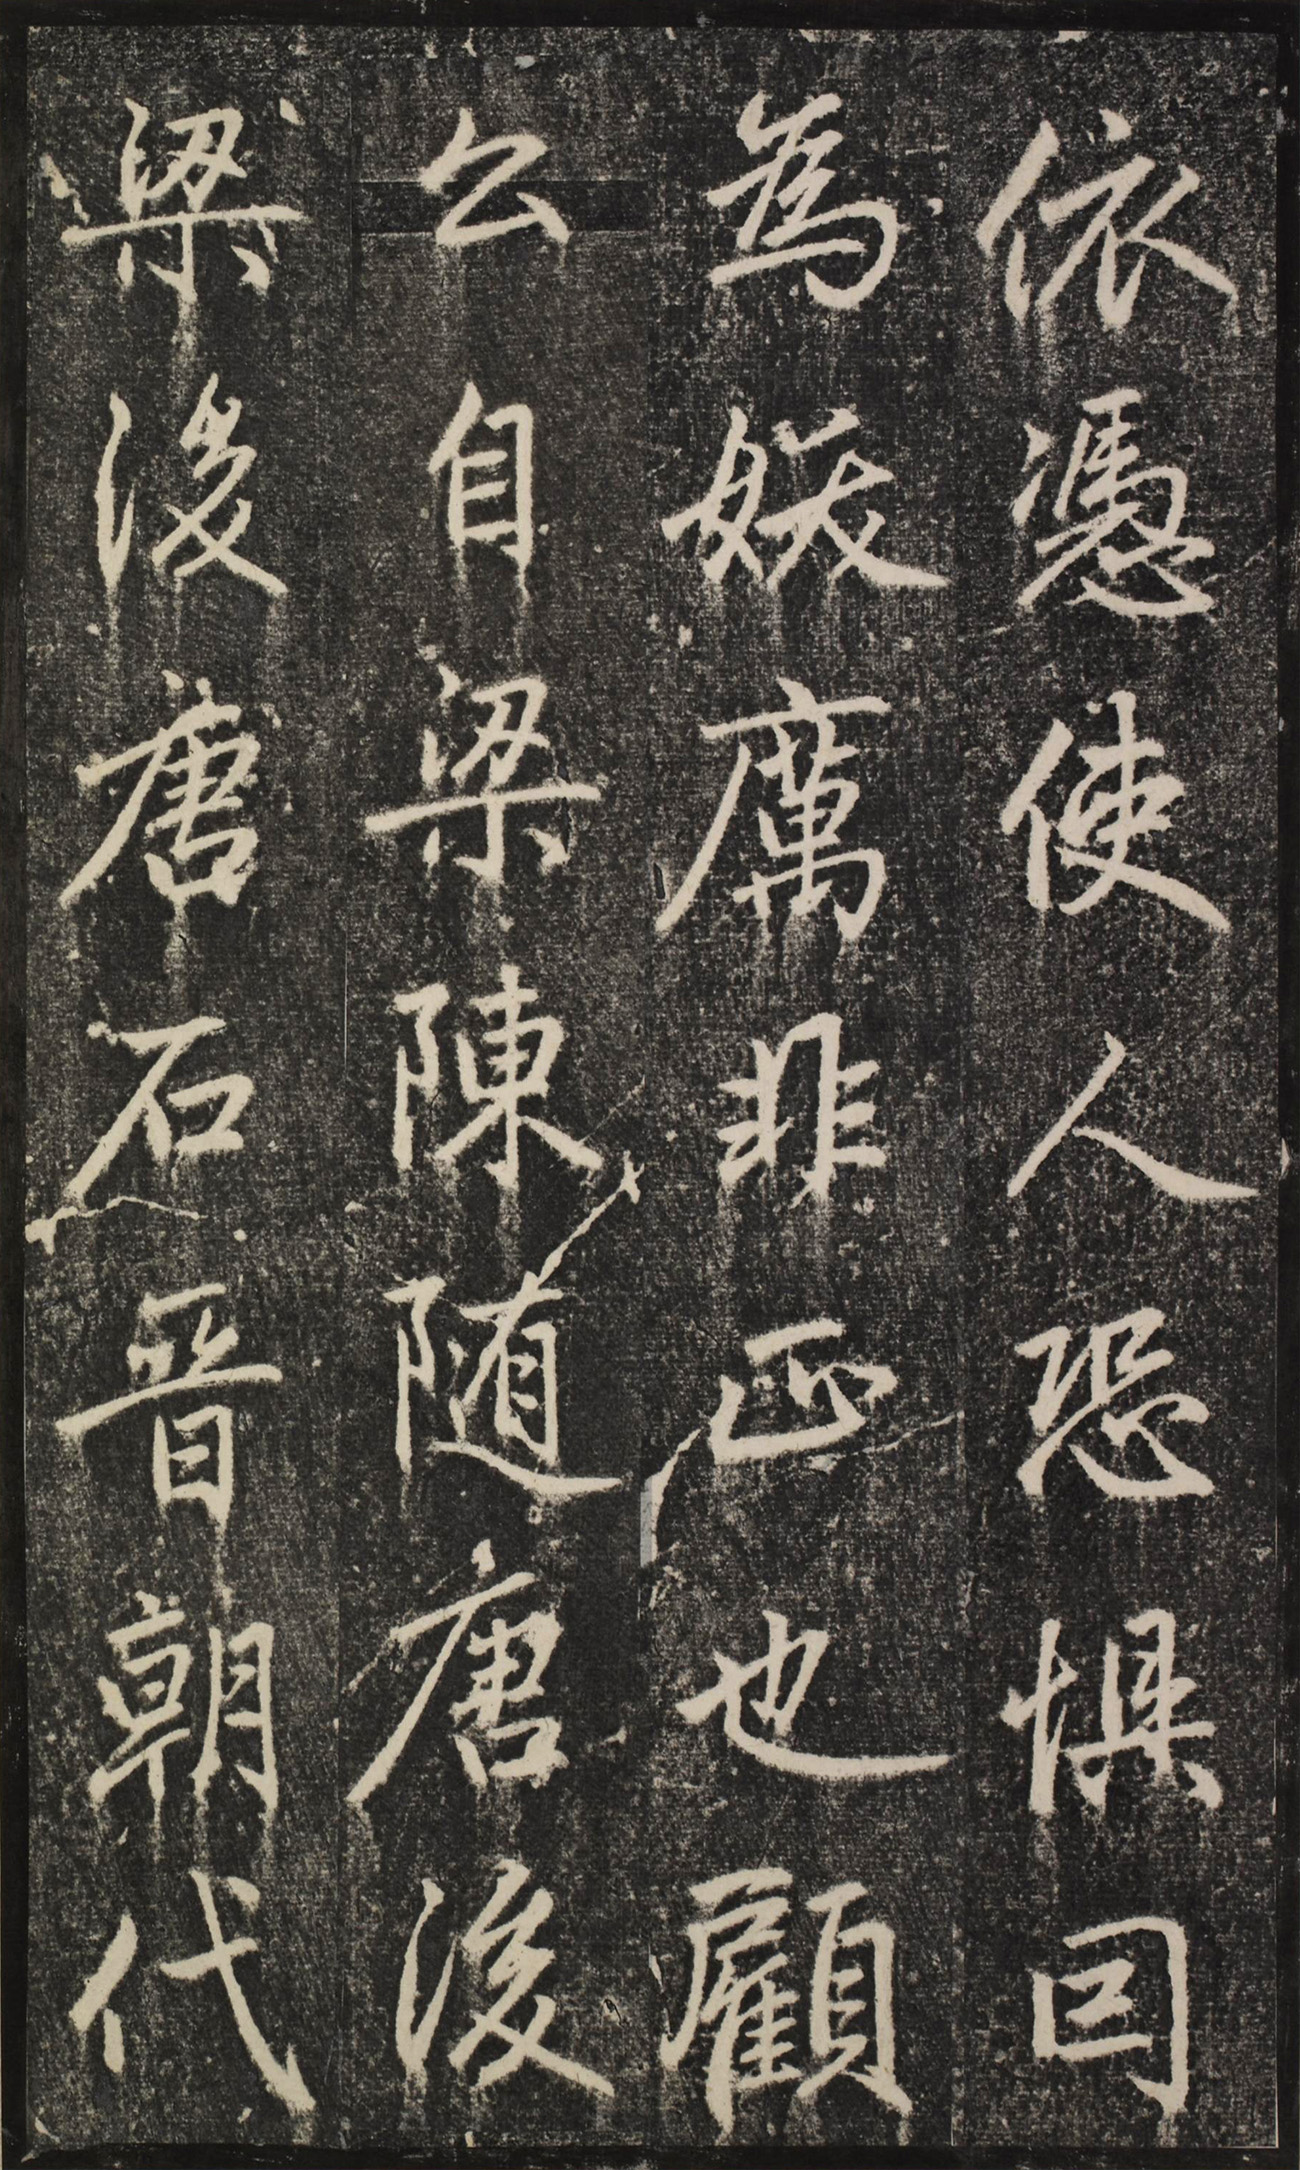 依憑使人恐惧囙
為妖厲非正也顧
公自梁陳随唐後
梁後唐石晋朝代